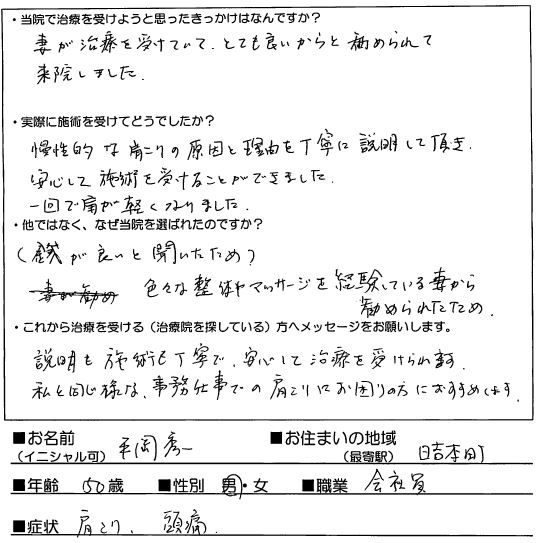 ・当院で治療を受けようと思ったきっかけはなんですか？
妻が治療を受けていて、とても良いからと勧められて
来院しました。
・実際に施術を受けてどうでしたか？
慢性的な肩こりの原因と理由を丁寧に説明して頂き、
安心して施術を受けることができました。
一回で肩が軽くなりました。
・他ではなく、なぜ当院を選ばれたのですか？
(鍼が良いと聞いたため)
妻が勧め 色々な整体やマッサージを経験している妻から
勧められたため。
・これから治療を受ける（治療院を探している）方へメッセージをお願いします。
説明も施術も丁寧で、安心して治療を受けられます。
私と同じ様な、事務仕事での肩こりにお困りの方におすすめします。
■お名前 平岡秀一 ■お住まいの地域
（イニシャル可） （最寄駅） 日吉本町
■年齢 50歳 ■性別 男・女 ■職業 会社員
■症状 肩こり、頭痛.